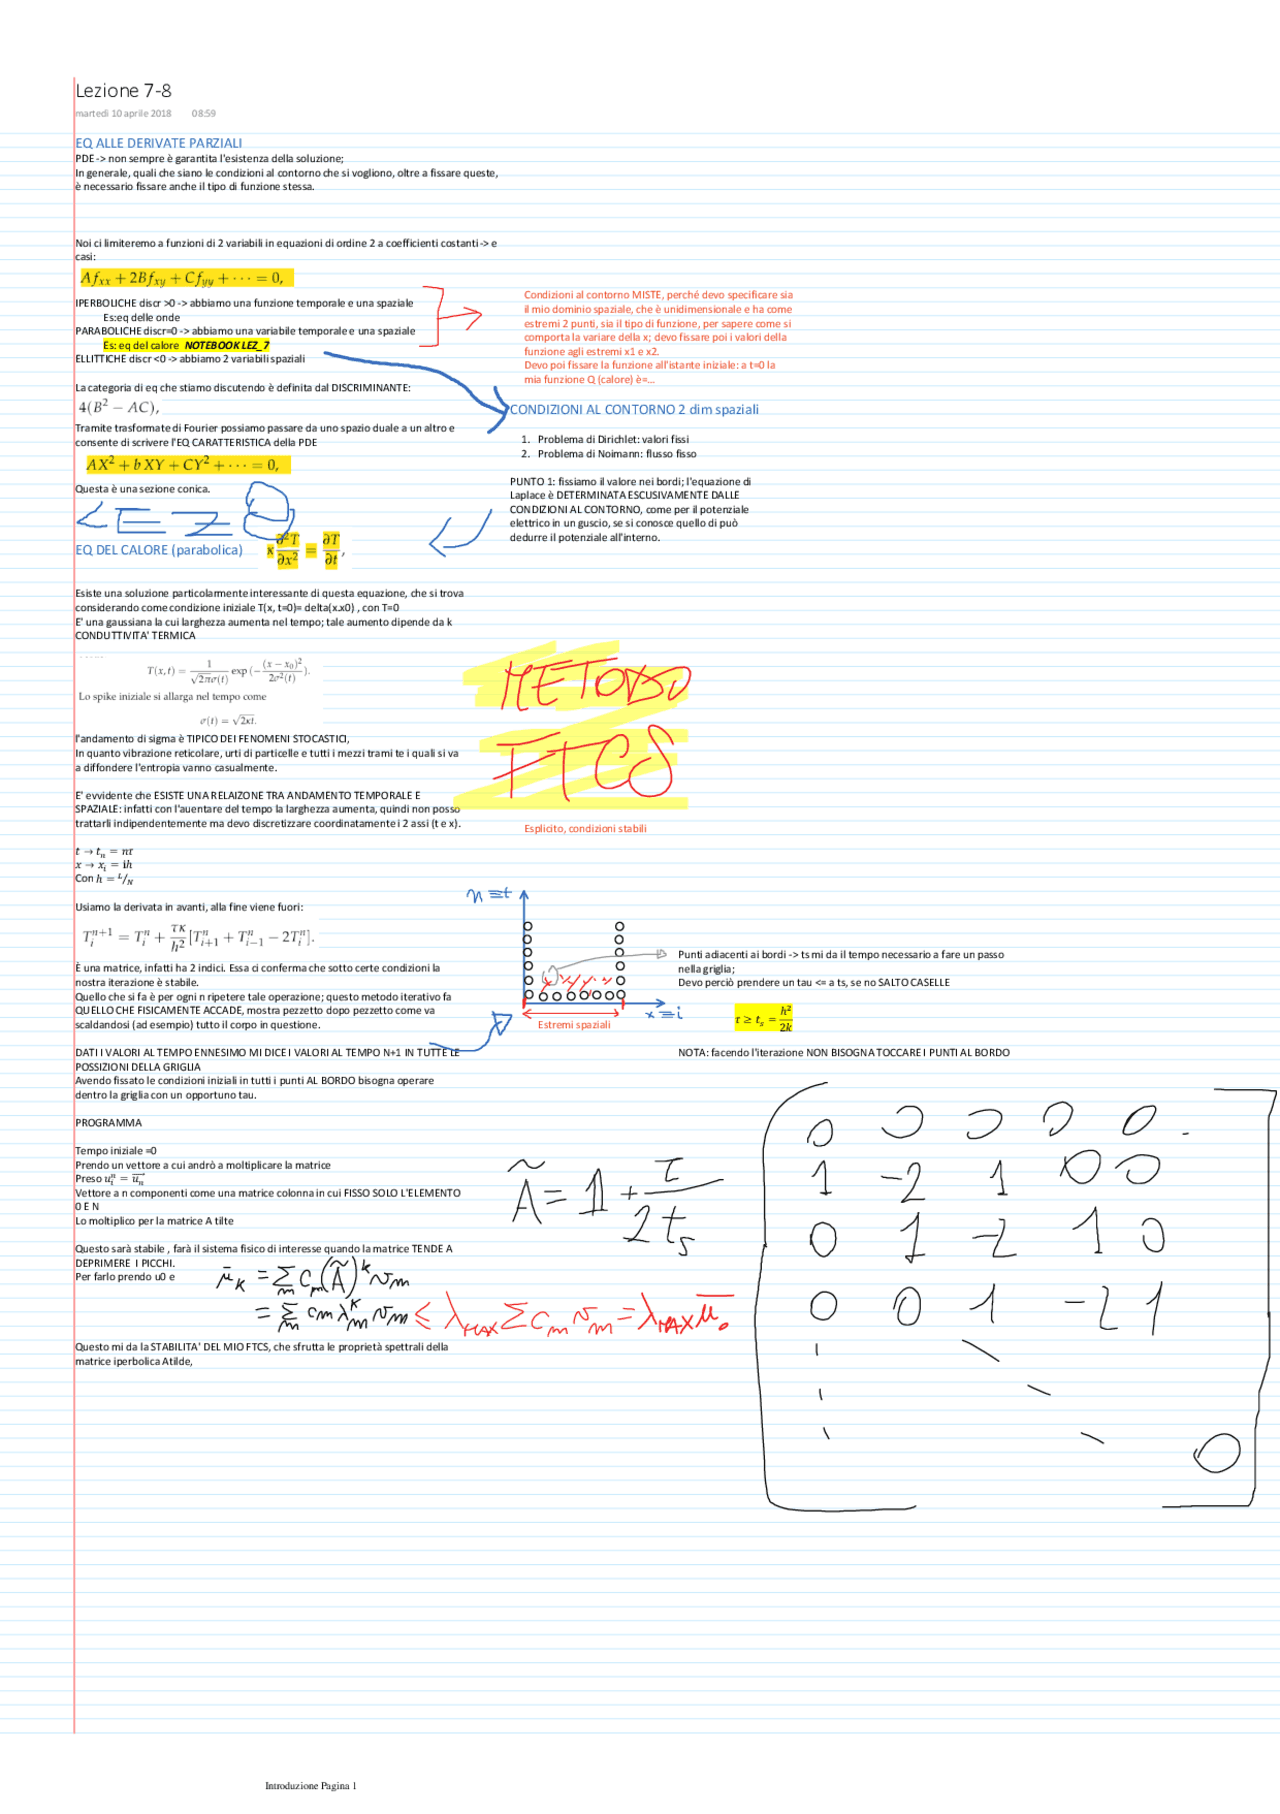 Lezione 7-8
martedì 10 aprile 2018 08:59
EQ ALLE DERIVATE PARZIALI
PDE -> non sempre è garantita l'esistenza della soluzione;
In generale, quali che siano le condizioni al contorno che si vogliono, oltre a fissare queste,
è necessario fissare anche il tipo di funzione stessa.
Noi ci limiteremo a funzioni di 2 variabili in equazioni di ordine 2 a coefficienti costanti -> e
casi:
Af_xx + 2Bf_xy + Cf_yy + ··· = 0,
IPERBOLICHE discr >0 -> abbiamo una funzione temporale e una spaziale
Es:eq delle onde
PARABOLICHE discr=0 -> abbiamo una variabile temporale e una spaziale
Es: eq del calore NOTEBOOK LEZ_7
ELLITTICHE discr <0 -> abbiamo 2 variabili spaziali
La categoria di eq che stiamo discutendo è definita dal DISCRIMINANTE:
4(B² − AC),
Tramite trasformate di Fourier possiamo passare da uno spazio duale a un altro e
consente di scrivere l'EQ CARATTERISTICA della PDE
AX² + bXY + CY² + ··· = 0,
Questa è una sezione conica.
Condizioni al contorno MISTE, perché devo specificare sia
il mio dominio spaziale, che è unidimensionale e ha come
estremi 2 punti, sia il tipo di funzione, per sapere come si
comporta la variare della x; devo fissare poi i valori della
funzione agli estremi x1 e x2.
Devo poi fissare la funzione all'istante iniziale: a t=0 la
mia funzione Q (calore) è=...
CONDIZIONI AL CONTORNO 2 dim spaziali
1. Problema di Dirichlet: valori fissi
2. Problema di Noimann: flusso fisso
PUNTO 1: fissiamo il valore nei bordi; l'equazione di
Laplace è DETERMINATA ESCUSIVAMENTE DALLE
CONDIZIONI AL CONTORNO, come per il potenziale
elettrico in un guscio, se si conosce quello di può
dedurre il potenziale all'interno.
LEZ 8
EQ DEL CALORE (parabolica) κ ∂²T/∂x² = ∂T/∂t,
Esiste una soluzione particolarmente interessante di questa equazione, che si trova
considerando come condizione iniziale T(x, t=0)= delta(x.x0) , con T=0
E' una gaussiana la cui larghezza aumenta nel tempo; tale aumento dipende da k
CONDUTTIVITA' TERMICA
T(x,t) = 1/(√2π σ(t)) exp(−(x − x₀)²/2σ²(t)).
Lo spike iniziale si allarga nel tempo come
σ(t) = √2κt.
l'andamento di sigma è TIPICO DEI FENOMENI STOCASTICI,
In quanto vibrazione reticolare, urti di particelle e tutti i mezzi trami te i quali si va
a diffondere l'entropia vanno casualmente.
E' evvidente che ESISTE UNA RELAIZONE TRA ANDAMENTO TEMPORALE E
SPAZIALE: infatti con l'auentare del tempo la larghezza aumenta, quindi non posso
trattarli indipendentemente ma devo discretizzare coordinatamente i 2 assi (t e x).
t → t_n = nτ
x → x_i = ih
Con h = L/N
METODO
FTCS
Esplicito, condizioni stabili
Usiamo la derivata in avanti, alla fine viene fuori:
T_i^{n+1} = T_i^n + τκ/h² [T_{i+1}^n + T_{i−1}^n − 2T_i^n].
È una matrice, infatti ha 2 indici. Essa ci conferma che sotto certe condizioni la
nostra iterazione è stabile.
Quello che si fa è per ogni n ripetere tale operazione; questo metodo iterativo fa
QUELLO CHE FISICAMENTE ACCADE, mostra pezzetto dopo pezzetto come va
scaldandosi (ad esempio) tutto il corpo in questione.
n ≡ t
x ≡ i
Estremi spaziali
Punti adiacenti ai bordi -> ts mi da il tempo necessario a fare un passo
nella griglia;
Devo perciò prendere un tau <= a ts, se no SALTO CASELLE
τ ≥ t_s = h²/2k
NOTA: facendo l'iterazione NON BISOGNA TOCCARE I PUNTI AL BORDO
DATI I VALORI AL TEMPO ENNESIMO MI DICE I VALORI AL TEMPO N+1 IN TUTTE LE
POSSIZIONI DELLA GRIGLIA
Avendo fissato le condizioni iniziali in tutti i punti AL BORDO bisogna operare
dentro la griglia con un opportuno tau.
PROGRAMMA
Tempo iniziale =0
Prendo un vettore a cui andrò a moltiplicare la matrice
Preso u_i^n = u_n
Vettore a n componenti come una matrice colonna in cui FISSO SOLO L'ELEMENTO
0 E N
Lo moltiplico per la matrice A tilte
Questo sarà stabile , farà il sistema fisico di interesse quando la matrice TENDE A
DEPRIMERE I PICCHI.
Per farlo prendo u0 e
ū_k = Σ_m c_m (Ã)^k v_m
= Σ_m c_m λ_m^k v_m ≤ λ_MAX Σ c_m v_m = λ_MAX ū_0
Questo mi da la STABILITA' DEL MIO FTCS, che sfrutta le proprietà spettrali della
matrice iperbolica Atilde,
Ã = 1 + τ/2t_s
0 0 0 0 0 .
1 -2 1 0 0
0 1 -2 1 0
0 0 1 -2 1
0
Introduzione Pagina 1